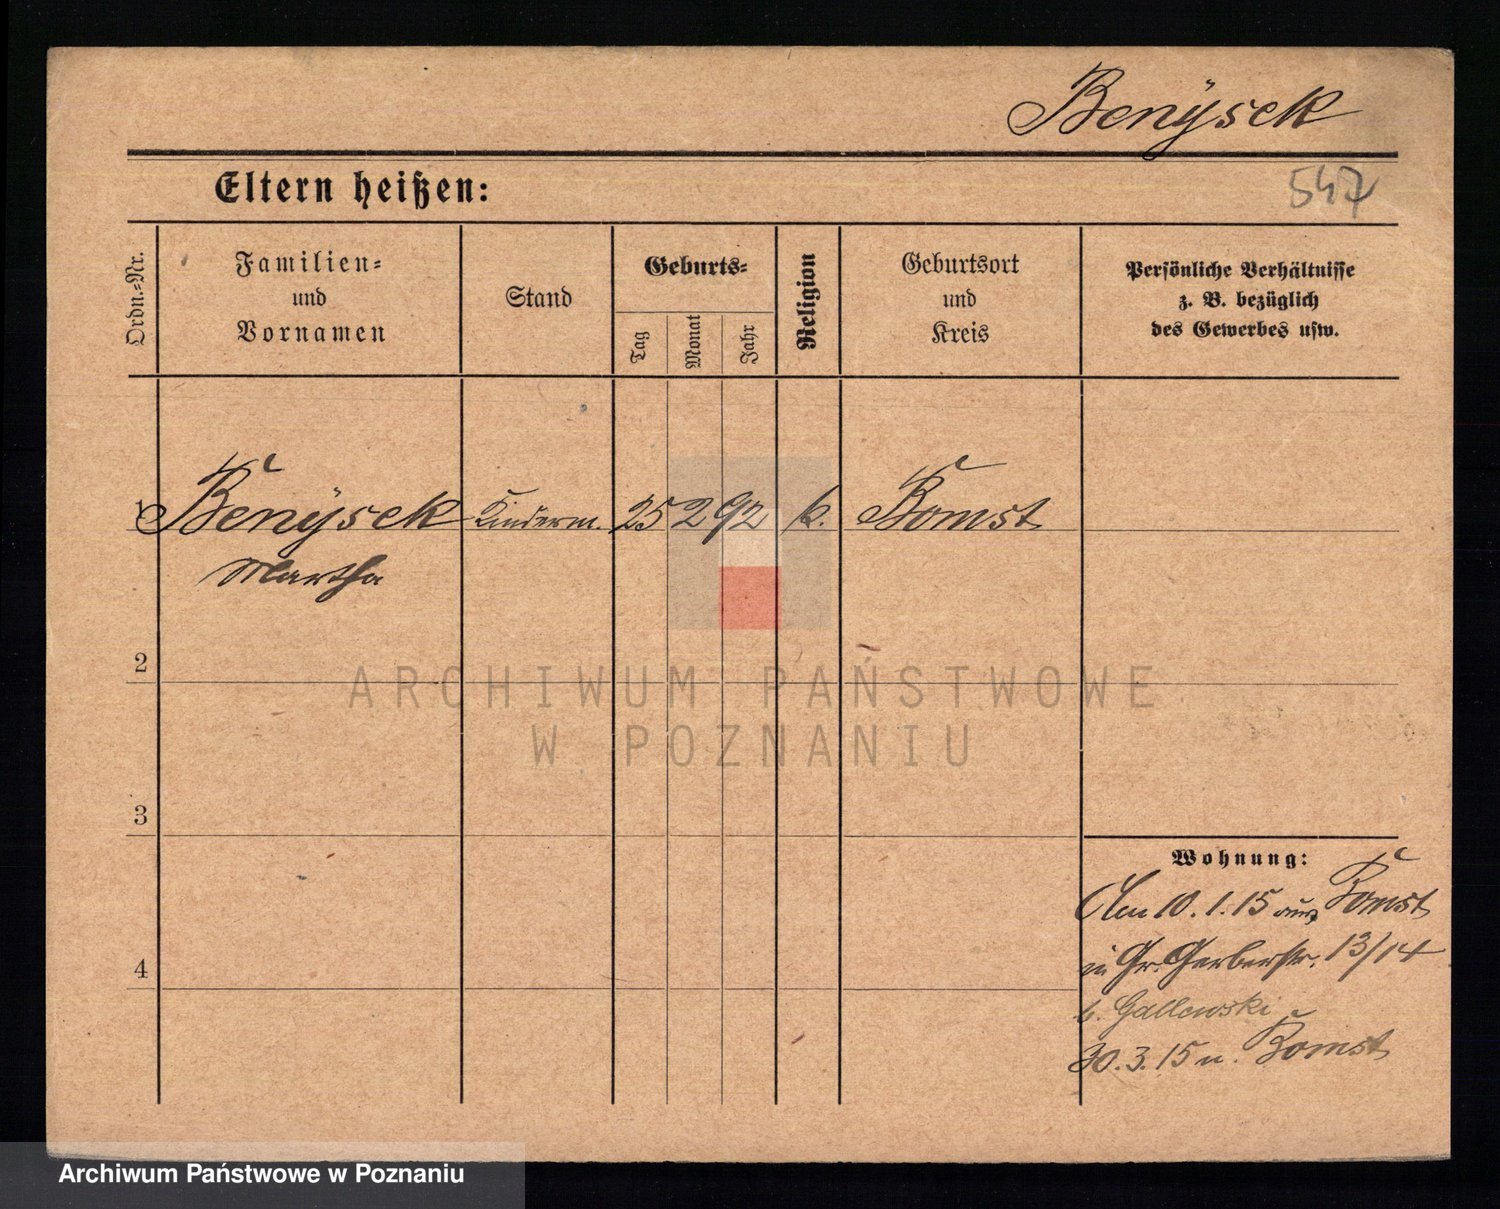 Benÿsek
Eltern heißen:
547
Ordn.-Nr.
Familien-
und
Vornamen
Stand
Geburts-
Tag
Monat
Jahr
Religion
Geburtsort
und
Kreis
Persönliche Verhältnisse
z. B. bezüglich
des Gewerbes usw.
1 Benÿsek Kinderm. 25 2 92 k. Bomst
Martha
2
ARCHIWUM PAŃSTWOWE
W POZNANIU
3
Wohnung:
Am 10.1.15 aus Bomst
in Gr. Gerberstr. 13/14
b. Gallewski
4
30.3.15 n. Bomst
Archiwum Państwowe w Poznaniu